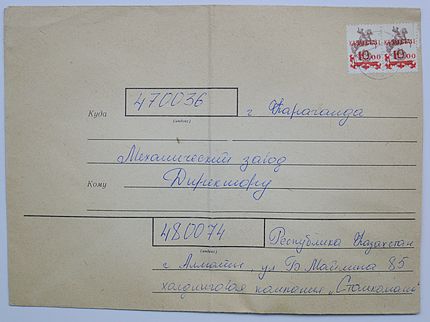 10.00 10.00
Куда
470036
(индекс)
г Караганда
Механический завод
Кому
Директору
480074
(индекс)
Республика Казахстан
г Алматы, ул Б Майлина 85
холдинговая компания „